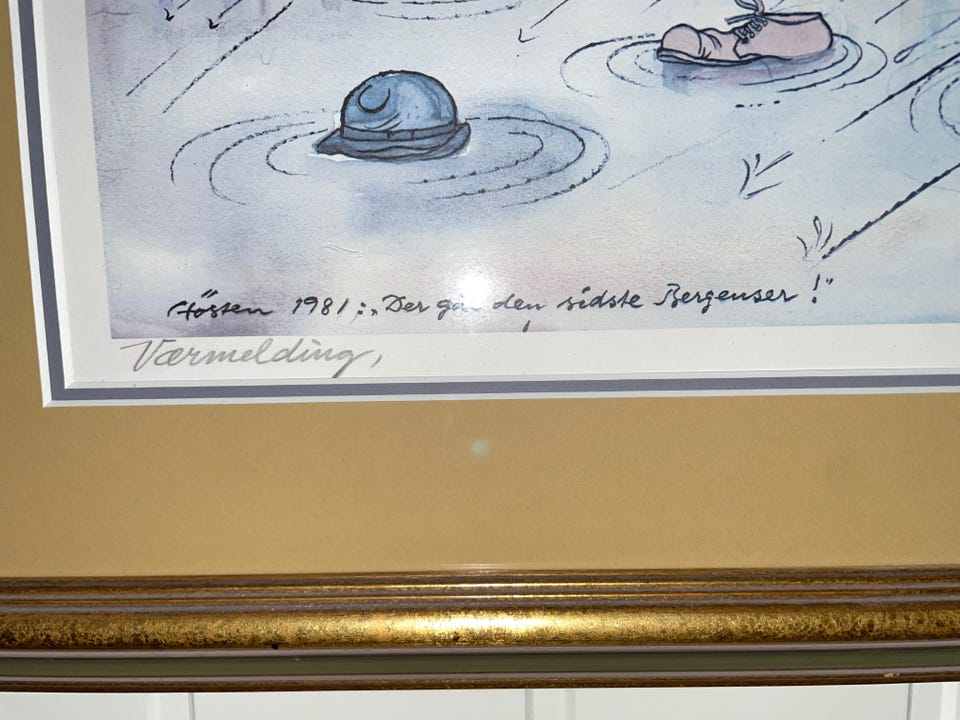 Hösten 1981: „Der går den sidste Bergenser!"
Værmelding,